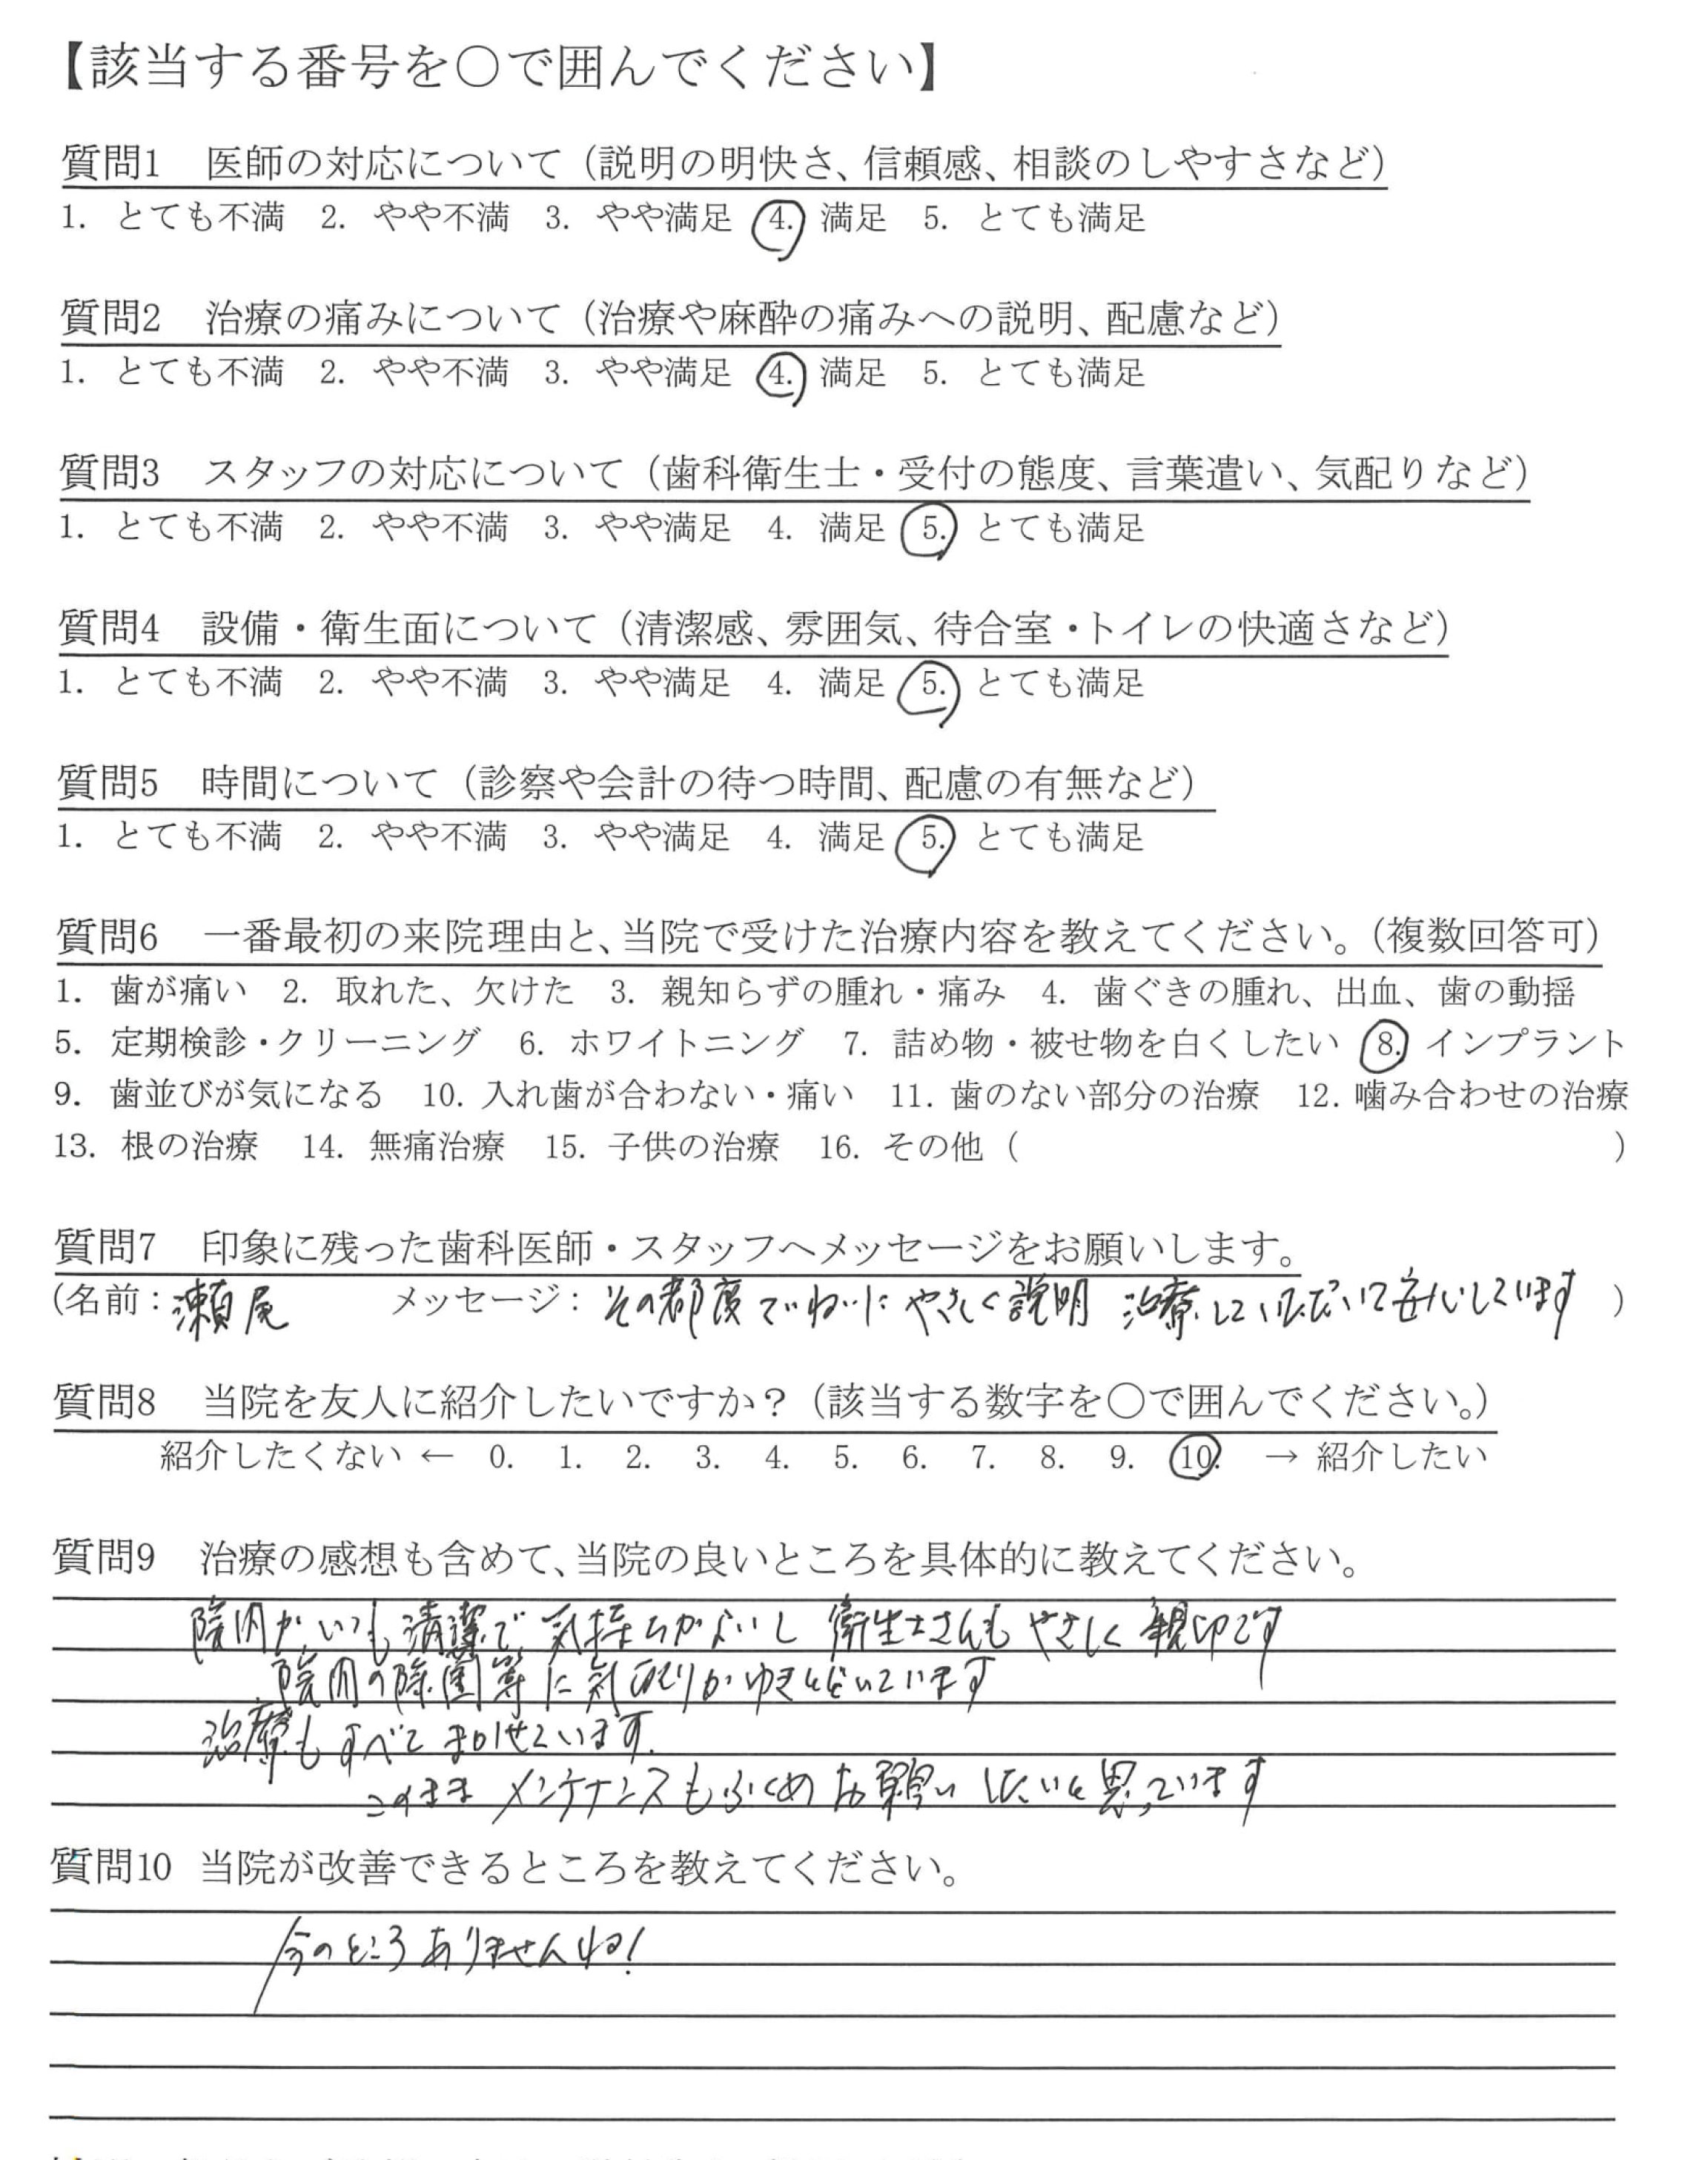 【該当する番号を〇で囲んでください】
質問1 医師の対応について（説明の明快さ、信頼感、相談のしやすさなど）
1. とても不満 2. やや不満 3. やや満足 4. 満足 5. とても満足
質問2 治療の痛みについて（治療や麻酔の痛みへの説明、配慮など）
1. とても不満 2. やや不満 3. やや満足 4. 満足 5. とても満足
質問3 スタッフの対応について（歯科衛生士・受付の態度、言葉遣い、気配りなど）
1. とても不満 2. やや不満 3. やや満足 4. 満足 5. とても満足
質問4 設備・衛生面について（清潔感、雰囲気、待合室・トイレの快適さなど）
1. とても不満 2. やや不満 3. やや満足 4. 満足 5. とても満足
質問5 時間について（診察や会計の待つ時間、配慮の有無など）
1. とても不満 2. やや不満 3. やや満足 4. 満足 5. とても満足
質問6 一番最初の来院理由と、当院で受けた治療内容を教えてください。（複数回答可）
1. 歯が痛い 2. 取れた、欠けた 3. 親知らずの腫れ・痛み 4. 歯ぐきの腫れ、出血、歯の動揺
5. 定期検診・クリーニング 6. ホワイトニング 7. 詰め物・被せ物を白くしたい 8. インプラント
9. 歯並びが気になる 10. 入れ歯が合わない・痛い 11. 歯のない部分の治療 12. 噛み合わせの治療
13. 根の治療 14. 無痛治療 15. 子供の治療 16. その他（ ）
質問7 印象に残った歯科医師・スタッフへメッセージをお願いします。
（名前：瀬尾 メッセージ：その都度ていねいにやさしく説明 治療していただいて安心しています ）
質問8 当院を友人に紹介したいですか？（該当する数字を〇で囲んでください。）
紹介したくない ← 0. 1. 2. 3. 4. 5. 6. 7. 8. 9. 10. → 紹介したい
質問9 治療の感想も含めて、当院の良いところを具体的に教えてください。
院内がいつも清潔で 気持ちがよいし 衛生士さんも やさしく 親切です
院内の除菌等に気配りがゆきとどいています
治療もすべてまかせています.
このまま メンテナンスもふくめ お願いしたいと思っています
質問10 当院が改善できるところを教えてください。
今のところありませんね!